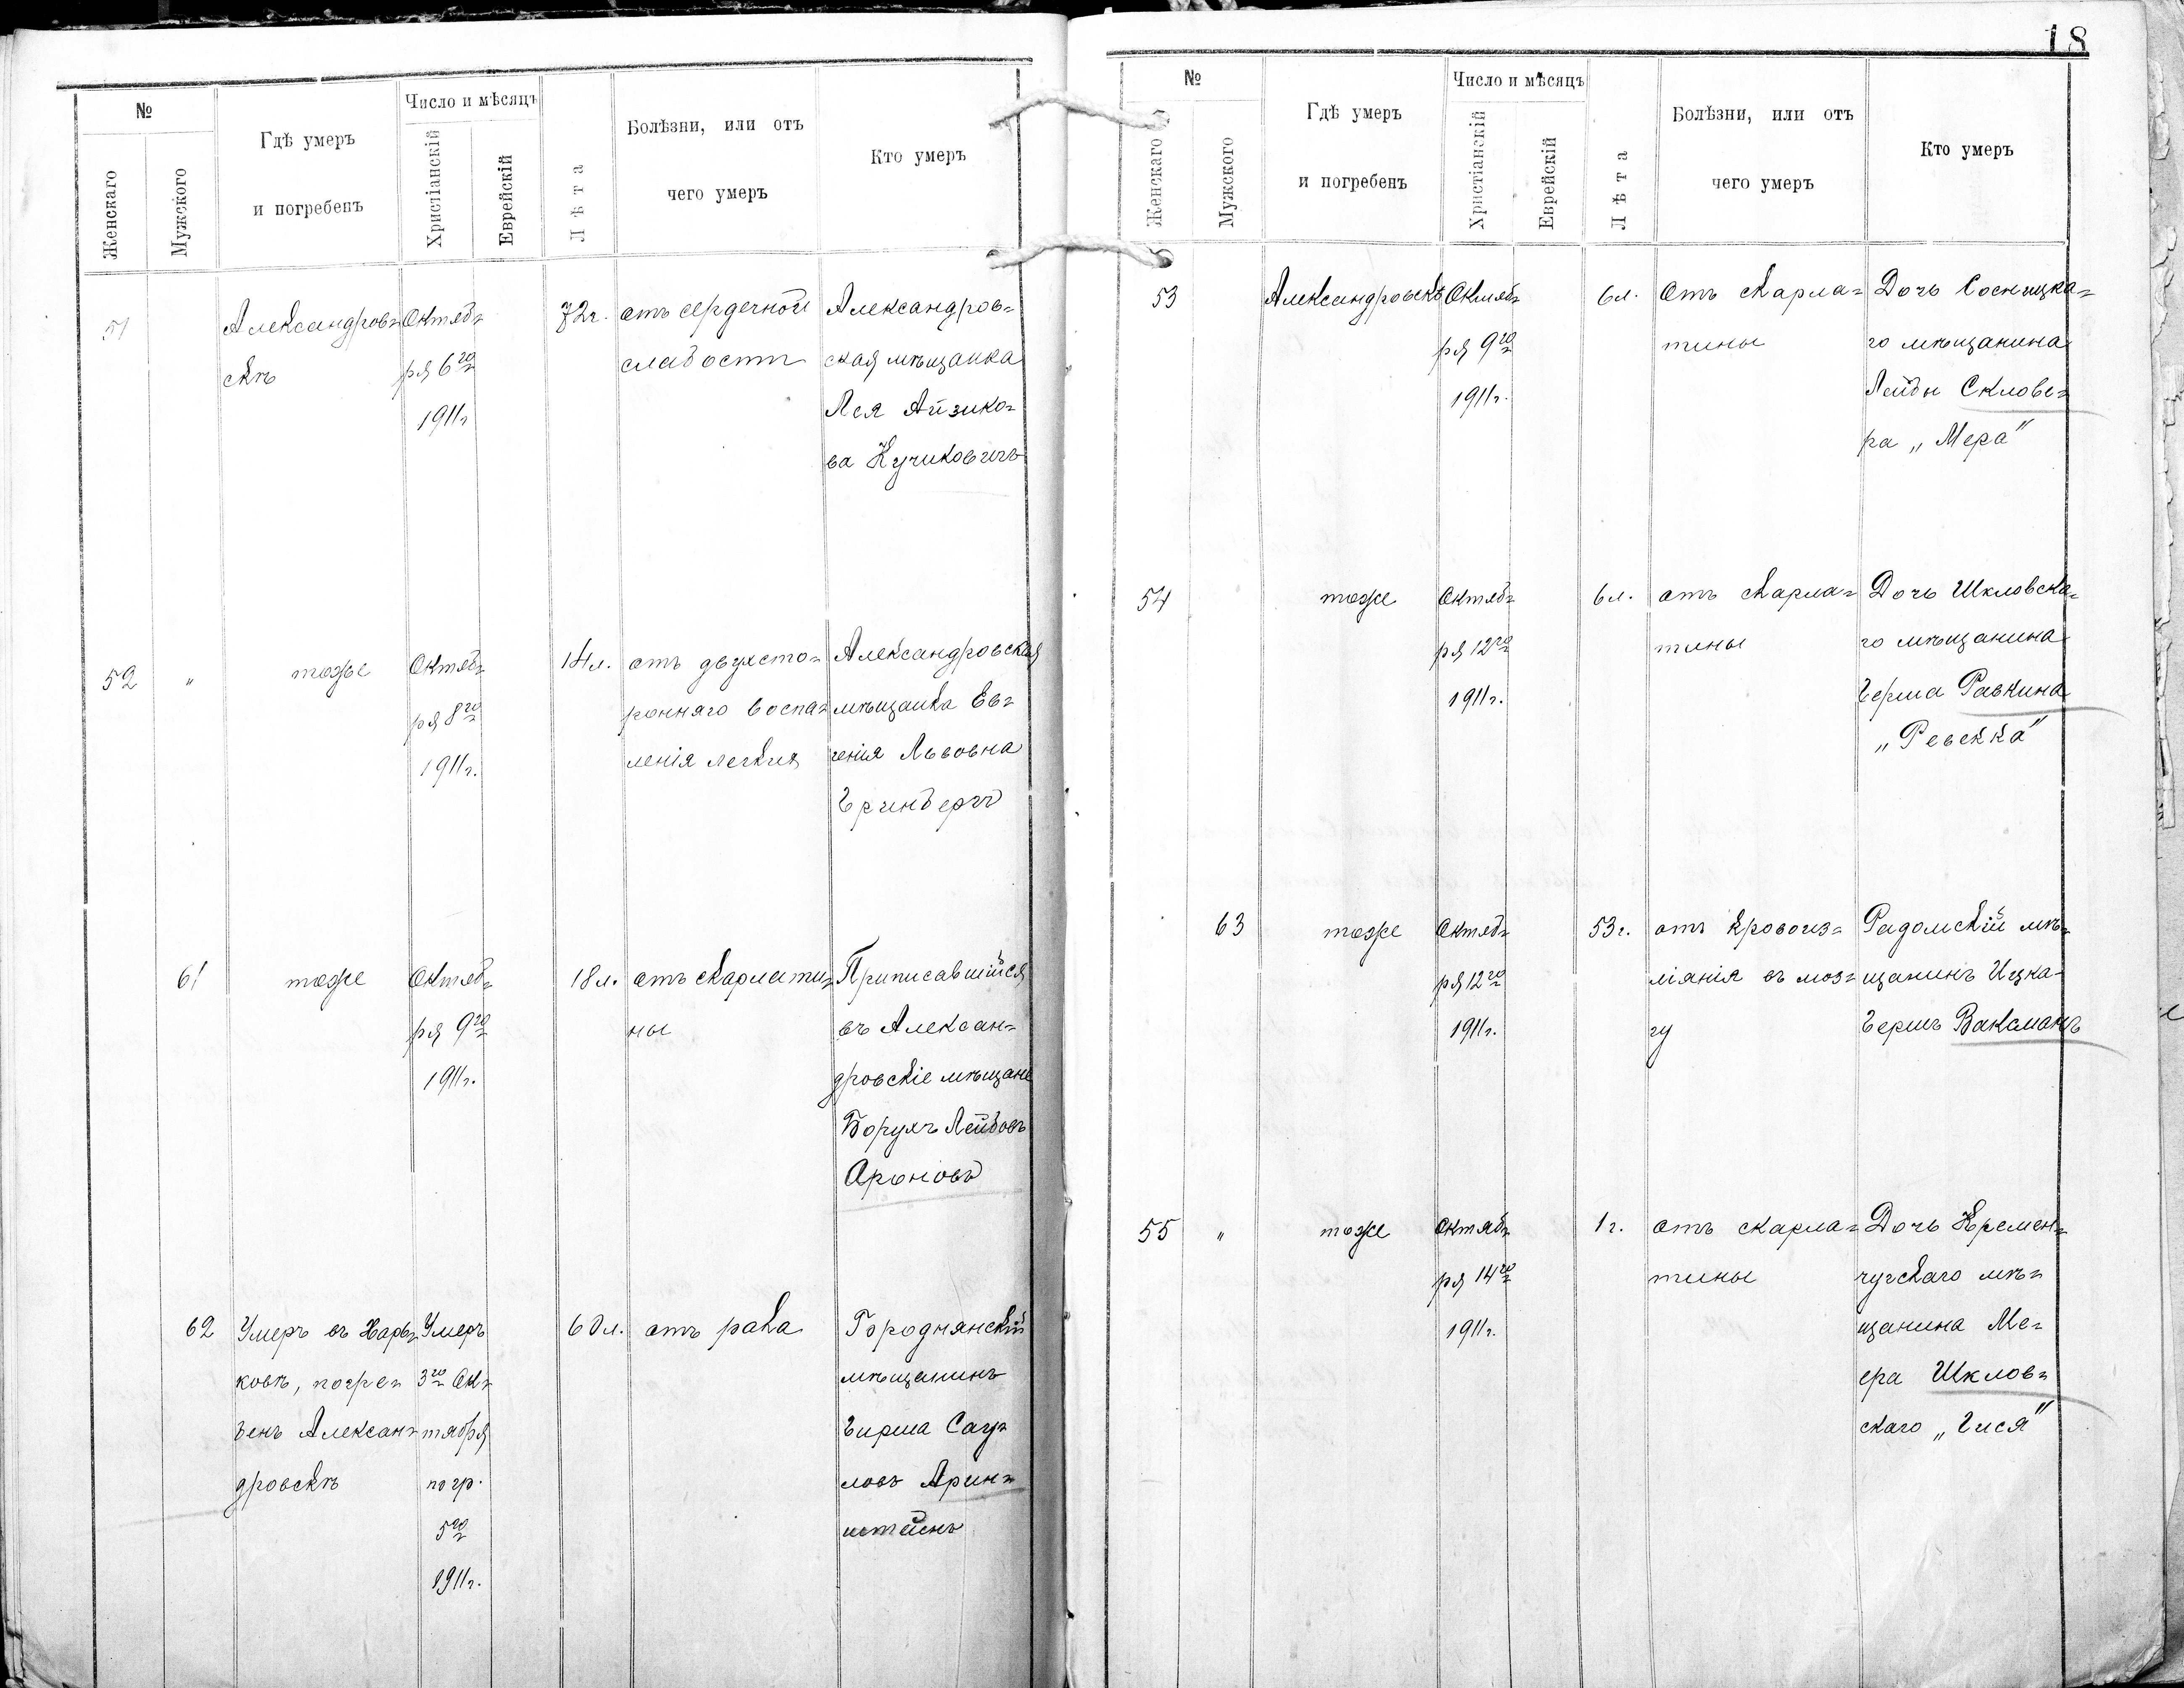 18
№
Женскаго
Мужского
Гдѣ умеръ
и погребенъ
Число и мѣсяцъ
Христіанскій
Еврейскій
Лѣта
Болѣзни, или отъ
чего умеръ
Кто умеръ
51
Александров=
скѣ
Октяб=
ря 6го
1911г
72г.
отъ сердечной
слабости
Александров=
ская мѣщанка
Лея Айзико=
ва Кучиковичъ
52 "
тоже
Октяб=
ря 8го
1911г.
14л.
отъ двухсто=
ронняго воспа=
ленія легкихъ
Александровская
мѣщанка Ев=
генія Львовна
Гринбергъ
61
тоже
Октяб=
ря 9го
1911г.
18л.
отъ скарлати=
ны
Приписавшійся
въ Алексан=
дровскіе мѣщане
Борухъ Лейбовъ
Ароновъ
62
Умеръ въ Харь=
ковѣ, погре=
бенъ Алексан=
дровскѣ
Умеръ
3го Ок=
тября
погр.
5го
1911г.
60л.
отъ рака
Городнянскій
мѣщанинъ
Гирша Сау=
ловъ Арин=
штейнъ
№
Женскаго
Мужского
Гдѣ умеръ
и погребенъ
Число и мѣсяцъ
Христіанскій
Еврейскій
Лѣта
Болѣзни, или отъ
чего умеръ
Кто умеръ
53
Александровскѣ
Октяб=
ря 9го
1911г.
6л.
Отъ скарла=
тины
Дочь Сосницка=
го мѣщанина
Лейбы Склове=
ра „Мера"
54
тоже
Октяб=
ря 12го
1911г.
6л.
отъ скарла=
тины
Дочь Шкловска=
го мѣщанина
Герша Равкина
„Ревекка"
63
тоже
Октяб=
ря 12го
1911г.
53г.
отъ кровоиз=
ліянія въ моз=
гу
Радомскій мѣ=
щанинъ Ицка-
Гершъ Ваксманъ
55 "
тоже
Октяб=
ря 14го
1911г.
1г.
отъ скарла=
тины
Дочь Кремен=
чугскаго мѣ=
щанина Ме=
ера Шклов=
скаго „Гися"